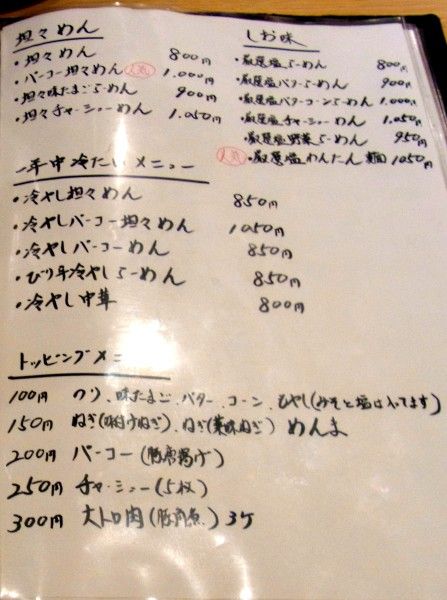 坦々めん
・坦々めん 800円
・パーコー坦々めん 人気 1.000円
・坦々味たまごらーめん 900円
・坦々チャーシューめん 1.050円
しお味
・厳選塩らーめん 800円
・厳選塩バターらーめん 900円
・厳選塩バターコーンらーめん 1.000円
・厳選塩チャーシューめん 1.050円
厳選塩野菜らーめん 950円
人気 ・厳選塩わんたん麺 1050円
一年中冷たいメニュー
・冷やし坦々めん 850円
・冷やしパーコー坦々めん 1050円
・冷やしパーコーめん 850円
・ぴり辛冷やしらーめん 850円
・冷やし中華 800円
トッピングメニュー
100円 のり、味たまご、バター、コーン、もやし(みそと塩は入ってます)
150円 ねぎ(味付けねぎ)、ねぎ(薬味ねぎ) めんま
200円 パーコー(豚唐揚げ)
250円 チャーシュー(5枚)
300円 大トロ肉(豚角煮) 3ケ